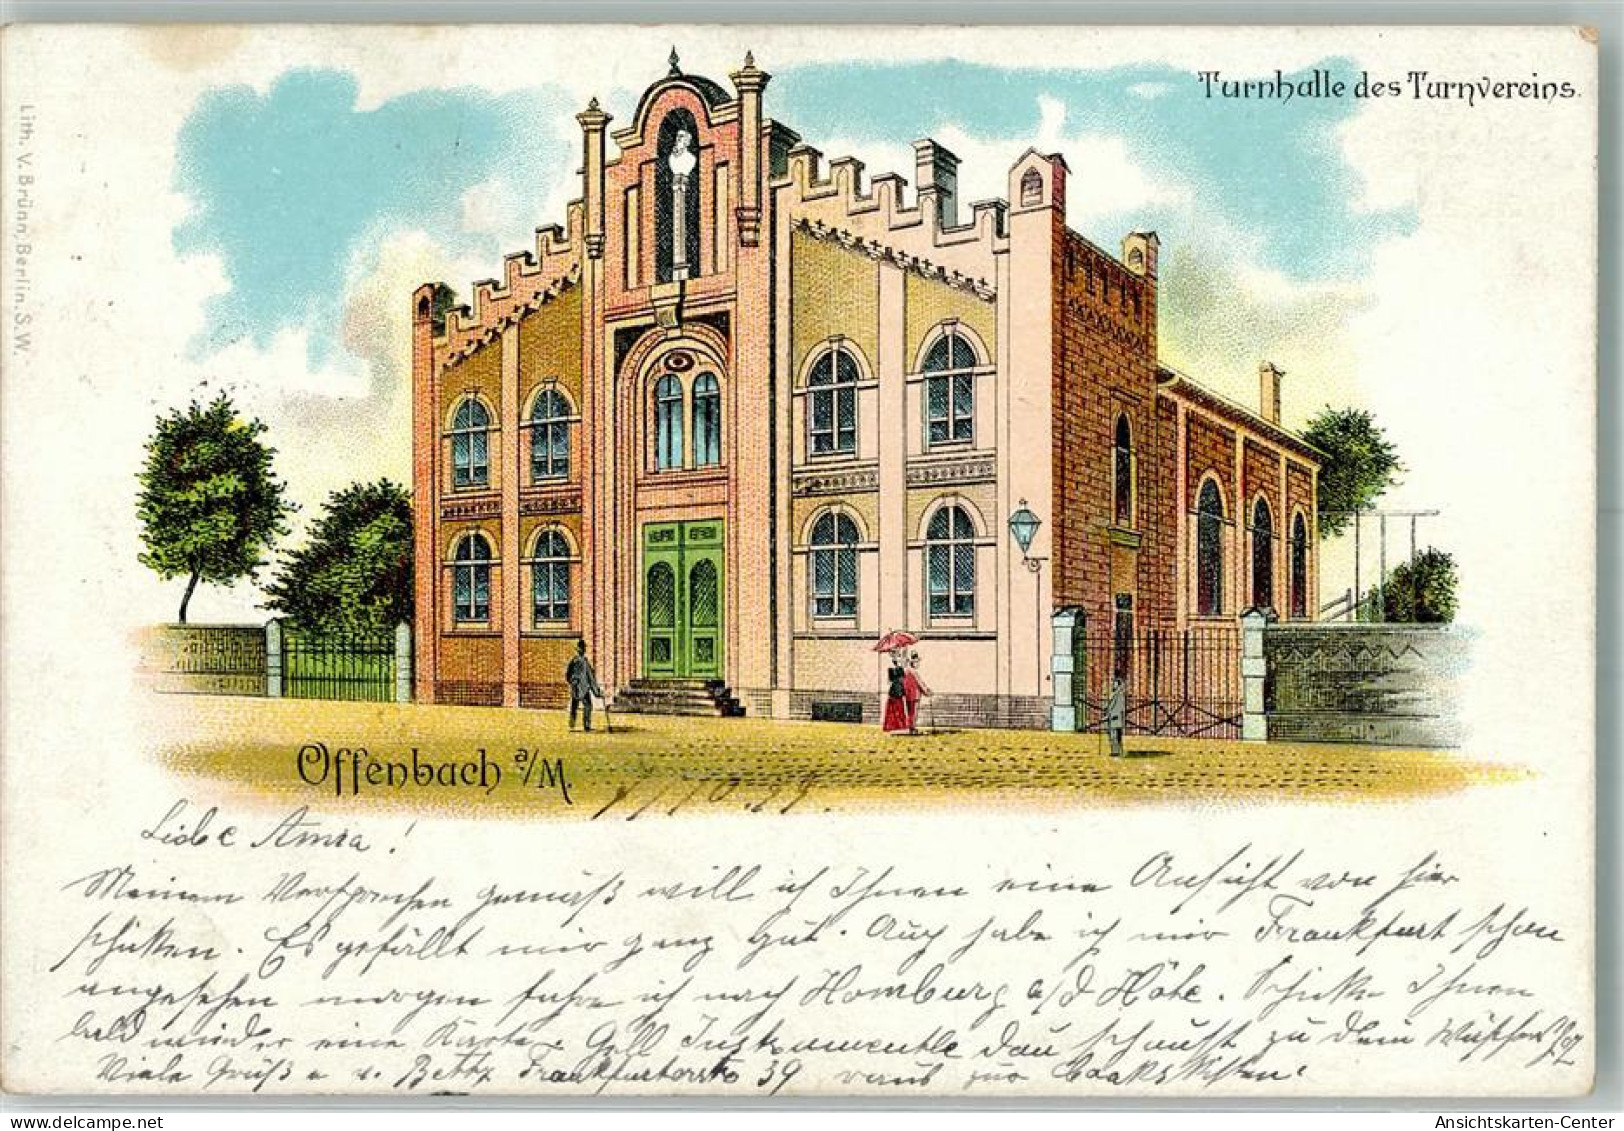 Turnhalle des Turnvereins.
Lith. V. Brünn, Berlin. S.W.
Offenbach a/M.
Liebe Anna!
Meinem Versprechen gemäß will ich Ihnen eine Ansicht von hier
schicken. Es gefällt mir ganz gut. Auch habe ich mir Frankfurt schon
angesehen morgen fahre ich nach Homburg a/d Höhe. Schicke Ihnen
bald wieder eine Karte. Gell zu dem
Viele Grüße v. Betty Frankfurterstr 39
Ansichtskarten-Center